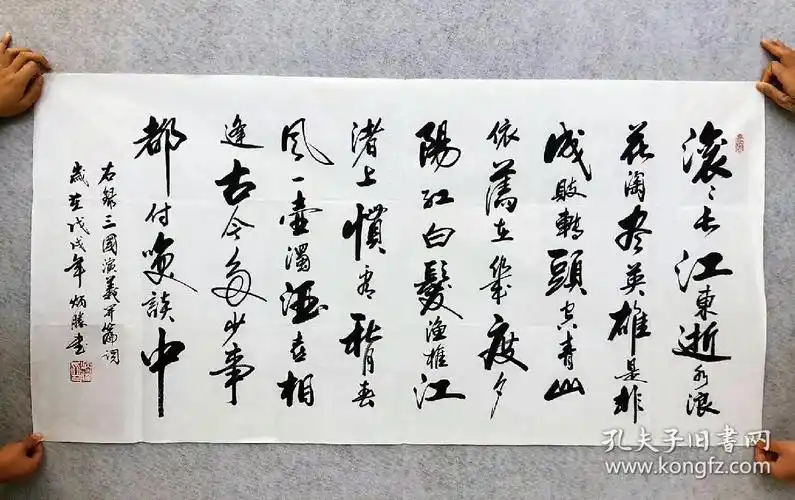 滚〻长江東逝水浪
花淘尽英雄是非
成敗轉頭空青山
依舊在幾度夕
陽紅白髮漁樵江
渚上慣看秋月春
風一壺濁酒喜相
逢古今多少事
都付笑談中
右錄三國演義开篇詞
歲在戊戌年炳勝書
孔夫子旧书网
www.kongfz.com